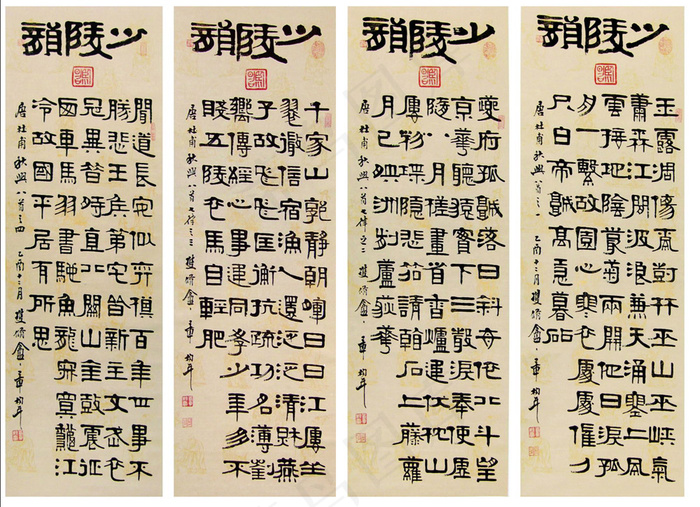 少陵韻
玉露凋傷楓樹林巫山巫峽氣
蕭森江間波浪兼天涌塞上風
雲接地陰叢菊兩開他日淚孤
舟一繫故園心寒衣處處催刀
尺白帝城高急暮砧
唐杜甫秋興八首之一 乙酉十二月
少陵韻
夔府孤城落日斜每依北斗望
京華聽猿實下三聲淚奉使虛
隨八月槎畫省香爐違伏枕山
樓粉堞隱悲笳請看石上藤蘿
月已映洲前蘆荻華
唐杜甫秋興八首七律之二
少陵韻
千家山郭靜朝暉日日江樓坐
翠微信宿漁人還泛泛清秋燕
子故飛飛匡衡抗疏功名薄劉
嚮傳經心事違同學少年多不
賤五陵衣馬自輕肥
唐杜甫秋興八首七律之三
少陵韻
聞道長安似弈棋百年世事不
勝悲王侯第宅皆新主文武衣
冠異昔時直北關山金鼓震征
西車馬羽書馳魚龍寂寞秋江
冷故國平居有所思
唐杜甫秋興八首之四 乙酉十二月